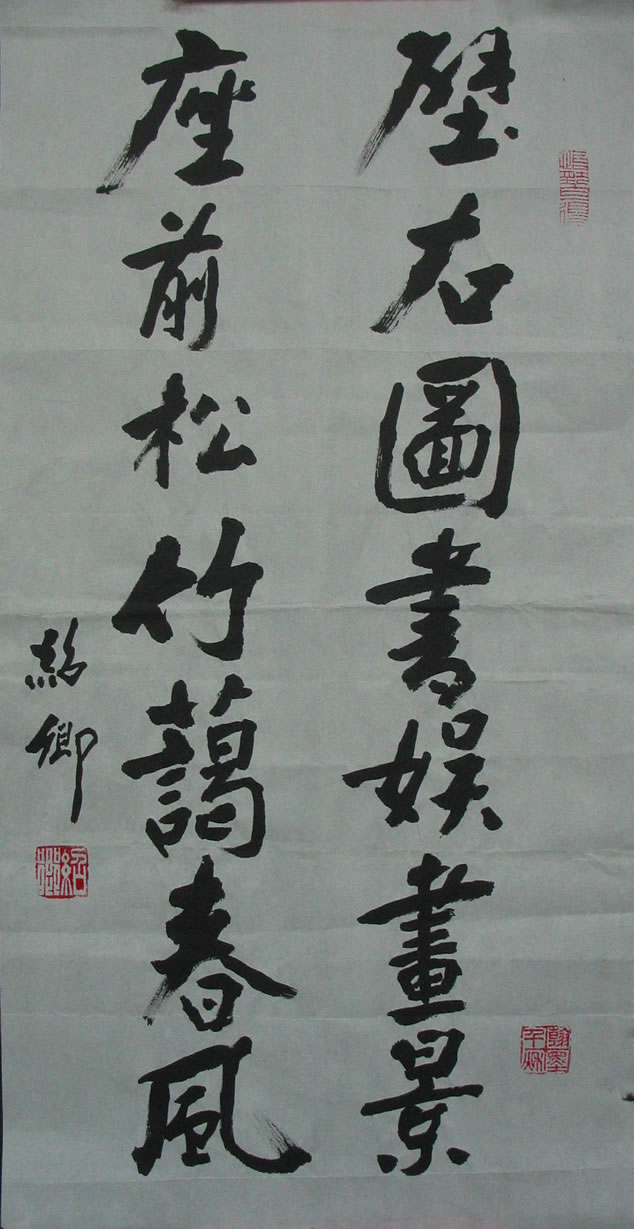 壁右圖書娱畫景
座前松竹藹春風
紹卿